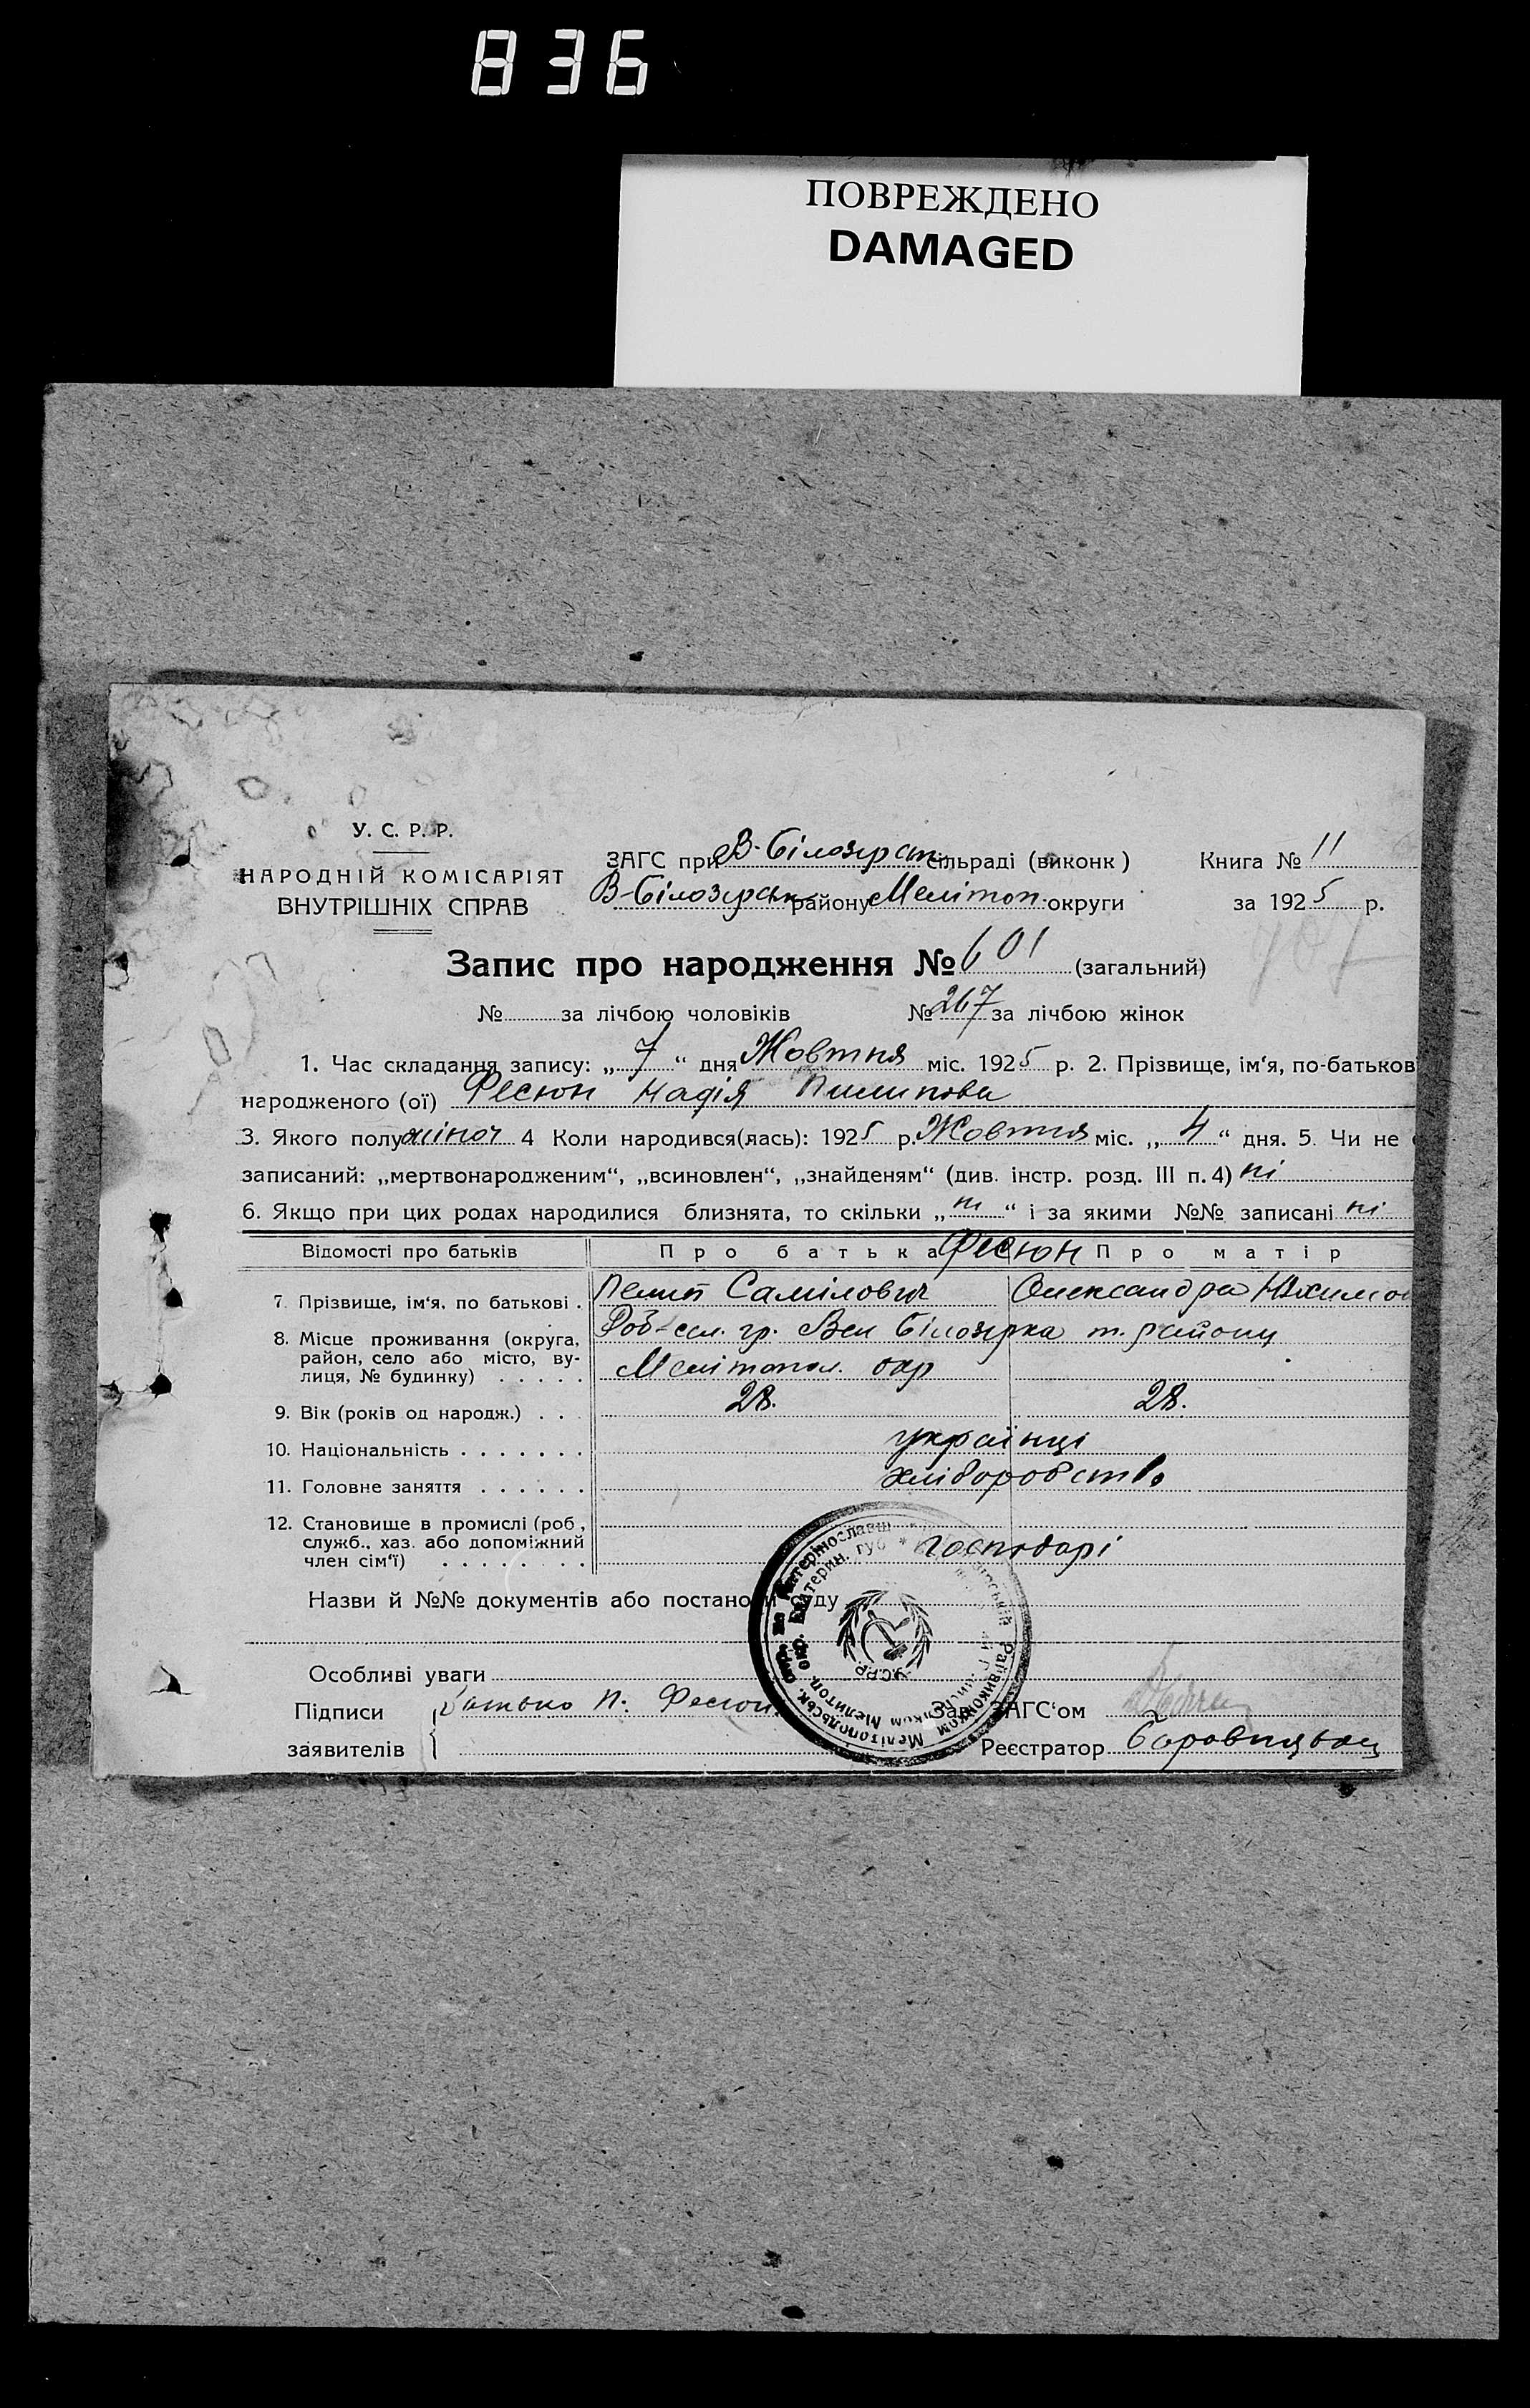 836
ПОВРЕЖДЕНО
DAMAGED
У. С. Р. Р.
НАРОДНІЙ КОМІСАРІЯТ
ВНУТРІШНІХ СПРАВ
ЗАГС при В-Білозерськ сільраді (виконк) Книга № 11
В-Білозерськ району Мелітоп. округи за 1925 р.
Запис про народження № 601 (загальний)
№ за лічбою чоловіків № 267 за лічбою жінок
1. Час складання запису: „7“ дня Жовтня міс. 1925 р. 2. Прізвище, ім‘я, по-батькові
народженого (ої) Фесюн Надія Пилипова
3. Якого полу жіноч 4 Коли народився(лась): 1925 р. Жовтня міс. „4“ дня. 5. Чи не
записаний: „мертвонародженим“, „всиновлен“, „знайденям“ (див. інстр. розд. III п. 4) ні
6. Якщо при цих родах народилися близнята, то скільки „ні“ і за якими №№ записані ні
Відомості про батьків Про батька Фесюн Про матір
7. Прізвище, ім‘я, по батькові . Пелип Самілович Олександра Юхимов
8. Місце проживання (округа, гр. Вел Білозерка т. району
район, село або місто, ву- Мелітопол. окр
лиця, № будинку) . . . . .
9. Вік (років од народж.) . . . 28. 28.
10. Національність . . . . . . . українці
11. Головне заняття . . . . . . хліборобство
12. Становище в промислі (роб.,
служб., хаз. або допоміжний господарі
член сім‘ї) . . . . . . . .
Назви й №№ документів або постанови суду
Особливі уваги
Підписи батько П. Фесюн Зав. ЗАГС‘ом
заявителів Реєстратор
У.С.Р.Р.